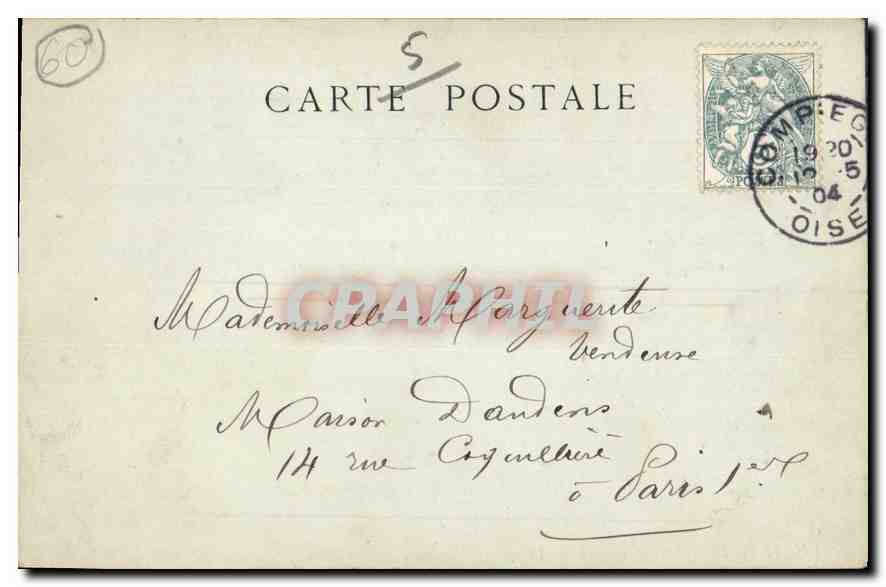 60
5
CARTE POSTALE
POSTES
COMPIEG
19 20
12 -5
04
OISE
CPAPHIL
Mademoiselle Marguerite
Vendeuse
Maison Daudens
14 rue Coquillière
à Paris 1er